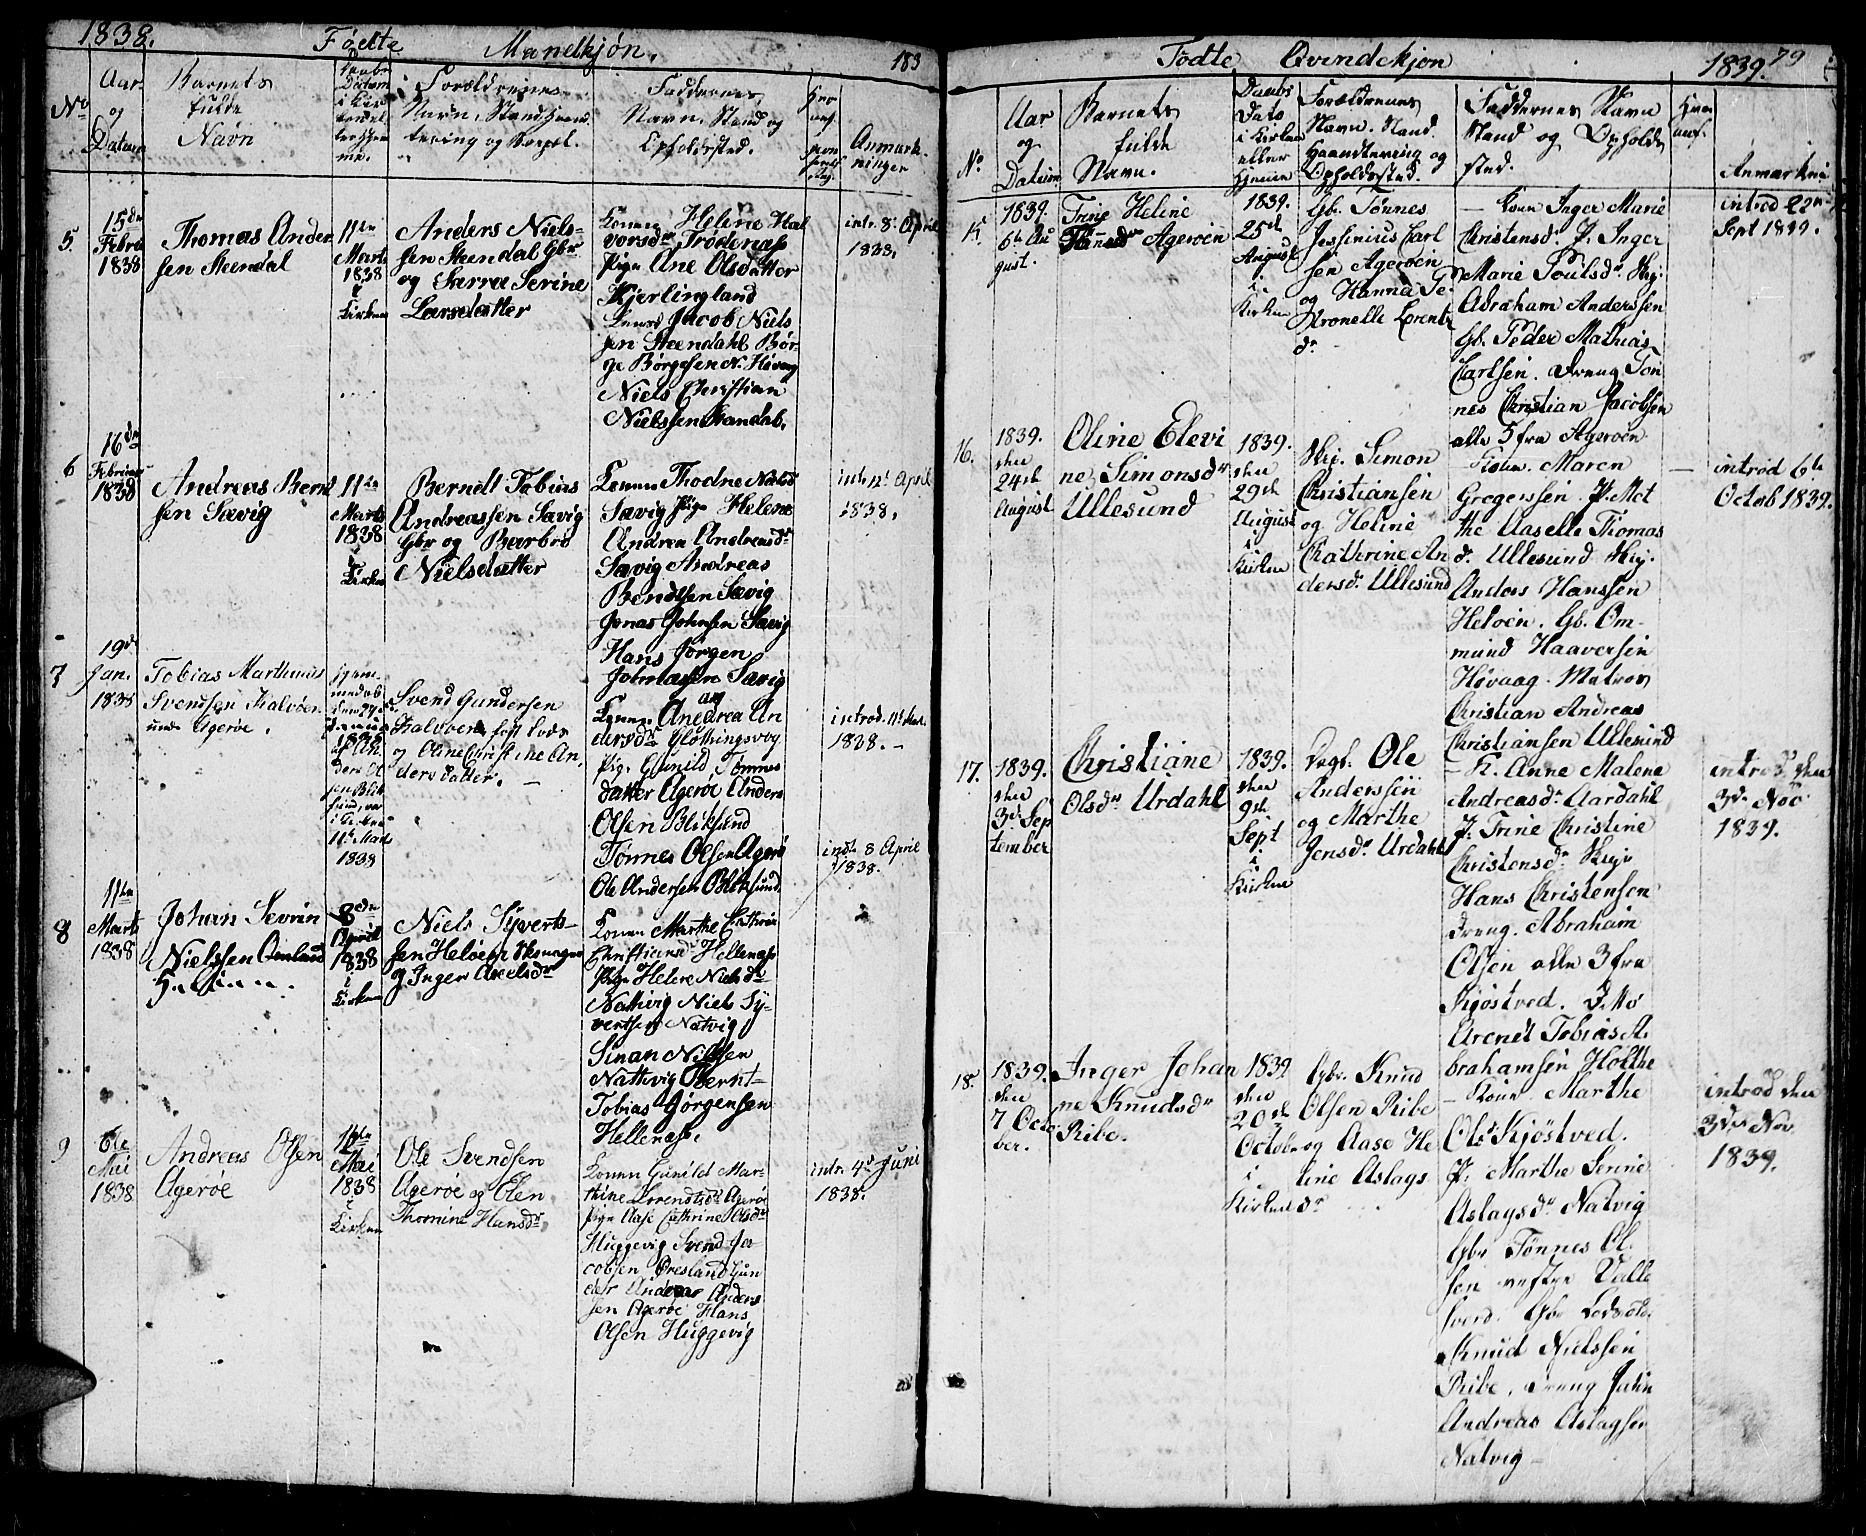 1838.
Fødte Mandkjøn.
183
No
Aar
og
Datum
Barnets
fulde
Navn
Daabs
Datum
i Kir
Forældrenes
Navn, Stand, Haand
tering og Boepæl.
Faddernes
Navn, Stand og
Opholdssted.
Anmærk-
ninger
5
15de
Febru
1838
Thomas Ander
sen Steendal
11te
Marts
1838
i
Kirken
Anders Niels-
sen Steendal Gbr
og Sarra Serine
Larsdatter
Konen Helene Hal
vorsdr Trødenæs
Pige Ane Olsdatter
Kjerlingland
Jacob Niels
sen Steendahl Bør-
ge Børgesen N. Høvaag
Niels Christian
Nielssen Standal.
intr. 8. April
1838.
6
16de
Februar
1838
Andreas Bernt
sen Sævig
11te
Marts
1838
i
Kirken
Berndt Tobias
Andreassen Sævig
Gbr og Barbro
Nielsdatter
Konen Thodne Nielsd
Sævig Pige Helene
Andrea Andreasdr
Sævig Andreas
Bendtsen Sævig
Jonas Johnsen Sævig
Hans Jørgen
Johnassen Sævig
intr. 11t April
1838.
7
19de
Jan.
1838
Tobias Marthinus
Svendsen Kalvøen
Agerøe.
hjem-
medøb
1838
af An
ders Ol
sen Blik
sund, var
i Kirken
11te Marts
1838
Svend Gundersen
Kalvøen fast Lods
og Oline Christine An,
dersdatter. —
Konen Andrea An
dersdr Glothingsvog
Pige Gunild Tønnes
datter Agerøe Anders
Olsen Bliksund
Tønnes Olsen Agerø
Ole Andersen Bliksund
introd. 11t Mar.
1838. –
8
11te
Marts
1838
Johan Sevrin
Nielssen Omland
8de
April
1838
i
Kirken
Niels Syverts-
sen Heløen Skomager
og Inger Axelsdr
Konen Marthe Cathrin
Christiansdr Hellenæs
Pige Helene Nielsdr
Nattvig Niels Sy-
vertsen Natvig
Siman Nilssen
Nattvig Bernt-
Tobias Jørgensen
Hellenæs.
intr. 8 April
1838.
9
6te
Mai
1838
Andreas Olsen
Agerøe
Mai
1838
i
Kirken
Ole Svendsen
Agerøe og Elen
Thomine Hansdr
Konen Gunild Mar-
thine Lorendtsdr Agerøe
Pige Aase Cathrine Olsdr
Huggevig Svend Ja-
cobsen Øresland Gun
der Andreas Anders
sen Agerøe Hans
Olsen Huggevig
intr. 4d Juni
1838.
Fødte Qvindekjøn
1839. 79
No
Aar
og
Datum
Barnets
fulde
Navn.
Daabs
Dato
i Kirken
eller
Hjemme
Forældrenes
Navn. Stand.
Haandtering og
Opholdssted.
Faddernes Navn
Stand og Opholds
sted.
Anmærkni
15.
1839.
6te Au
gust.
Trine Heline
Tønnesdr Agerøen
1839.
25de
August
i
Kirken
Gb. Tønnes
Jessinius Carl
sen Agerøen
og Hanna Pe
tronelle Lorents
dr
— Kone Inger Marie
Christensd. P. Inger
Marie Poulsdr Ugj.
Abraham Anderssen
Gb. Peder Mathias
Carlsen. Dreng Tøn
nes Christian Jacobsen
alle 5 fra Agerøen
introd 22de
Sept 1839.
16.
1839.
den
24de
August
Oline Elevi
ne Simonsdr
Ullesund
1839.
den
29de
August
i
Kirken
Ugj. Simon
Christiansen
og Heline
Chathrine An
dersdr Ullesund
– Kone. Maren
Gregerssen. P. Mot
the Aaselle Thomas
dr Ullesund Ugj.
Anders Hanssen
Heløen. Gb. Om-
mund Haaversen
Høvaag. Matros
Christian Andreas
Christiansen Ullesund
introd 6te
Octob 1839.
17.
1839.
den
3de Sep
tember
Christiane
Olsdr Urdahl
1839.
den
9de
Sept
i
Kirken
Ole
Anderssen
og Marthe
Jensdr Urdahl
– K. Anne Malene
Andreasdr Aardahl
P. Trine Christine
Christensdr Ugj.
Hans Christensen
Dreng. Abraham
Olsen alle 3 fra
Kjøstved.
Arendt Tobias A.
brahamsen Holthe
introd den
3de Nov
1839.
18.
1839.
den
7 Octo
ber.
Inger Johan
ne Knudsdr
Ribe.
1839
den
20de
October
i
Kirken
Gbr. Knud
Olsen Ribe
og Aase He
line Aslags
dr
– Kone. Marthe
Olsd Kjøstved.
P. Marthe Serine
Aslagsdr Natvig
Gbr Tønnes Ol
sen vestre Valle
Knud Nielssen
Ribe. Dreng John
Andreas Aslagsen
Natvig –
introd den
3de Nov
1839.